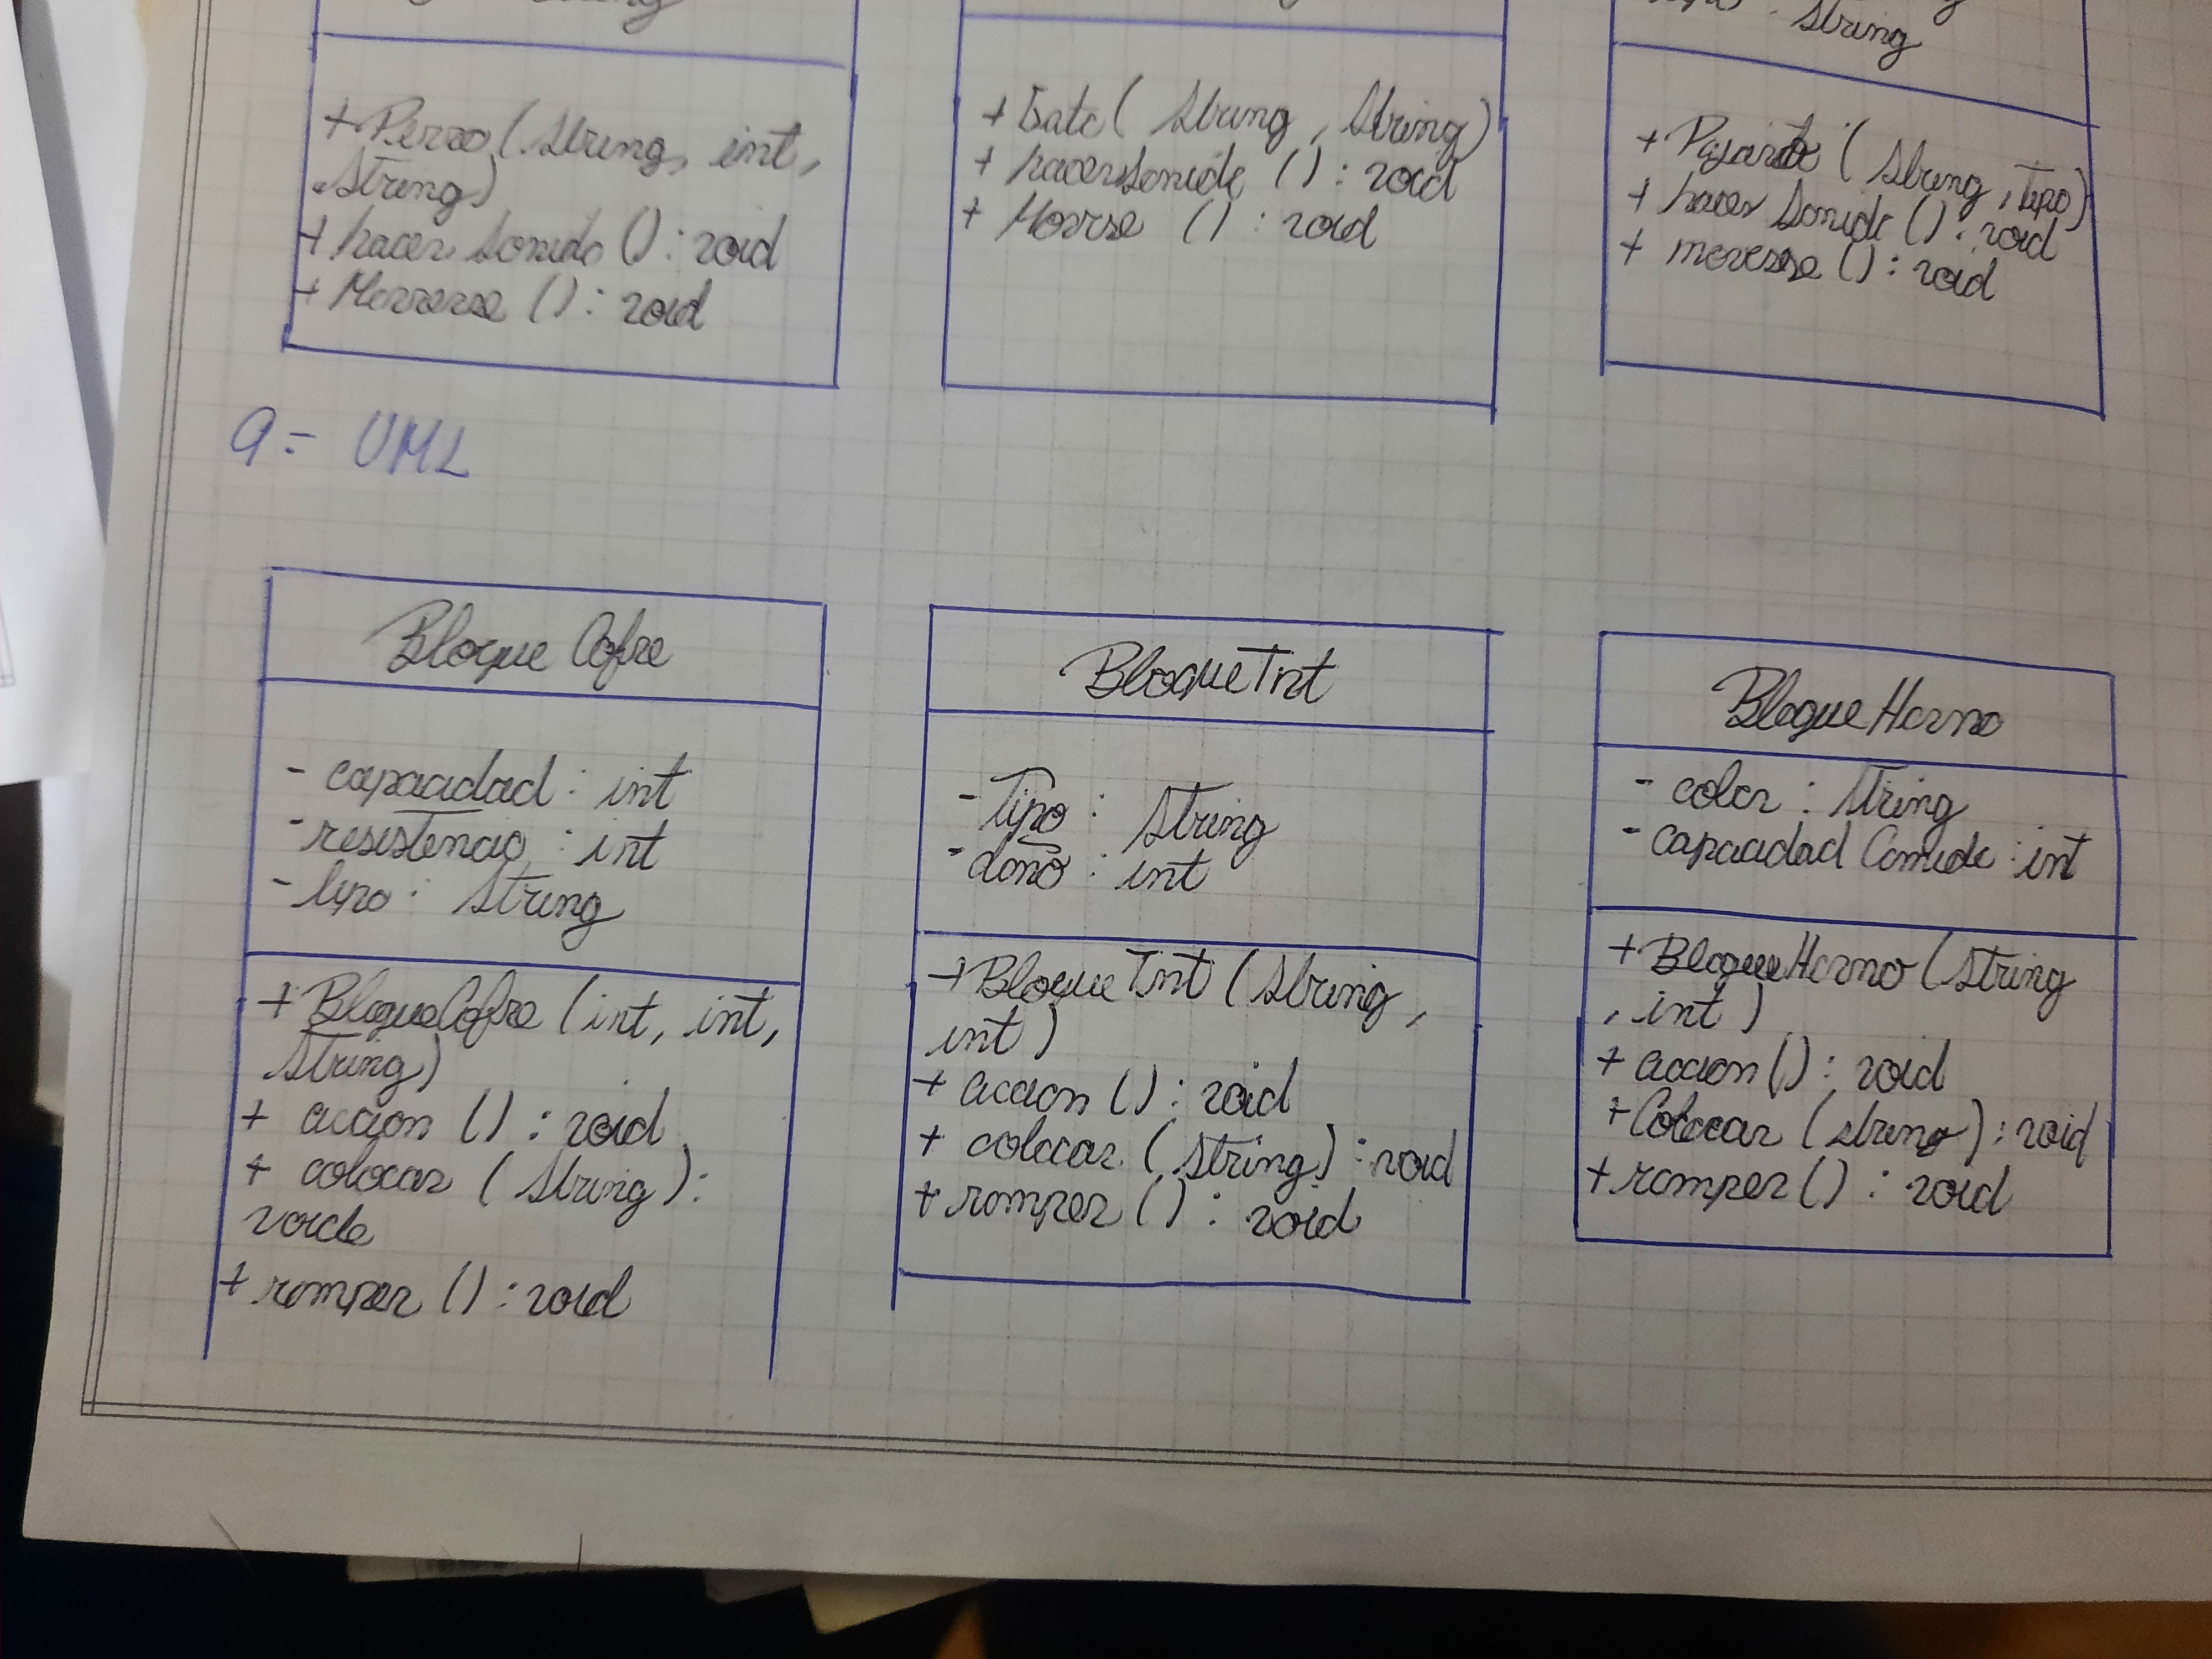 String
+ Perro (String, int,
String)
+ hacer Sonido () : void
+ Moverse () : void
+ Gato ( String, String)
+ hacerSonido () : void
+ Moverse () : void
+ Pajaro ( String, Tipo)
+ hacer Sonido () : void
+ moverse () : void
9 = UML
Bloque Cofre
- capacidad : int
- resistencia : int
- tipo : String
+ BloqueCofre (int, int,
String)
+ accion () : void
+ colocar ( String ) :
void
+ romper () : void
BloqueTnt
- Tipo : String
- daño : int
+ Bloque Tnt ( String,
int )
+ accion () : void
+ colocar (String) : void
+ romper () : void
Bloque Horno
- color : String
- capacidad Comida : int
+ BloqueHorno (String
, int )
+ accion () : void
+ Colocar ( String ) : void
+ romper () : void